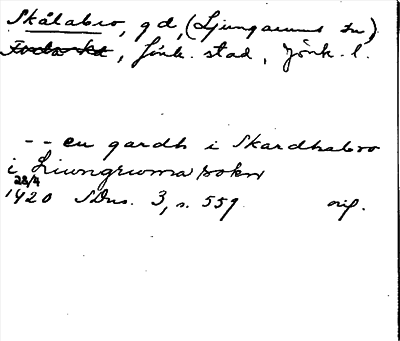 Skålabro, gd, (Ljungarums sn)
Torbo hd, Jönk. stad, Jönk. l.
-- en gardh i Skardhabro
i Liungrwma sokn
28/4
1420 SDns. 3, s. 559 orig.